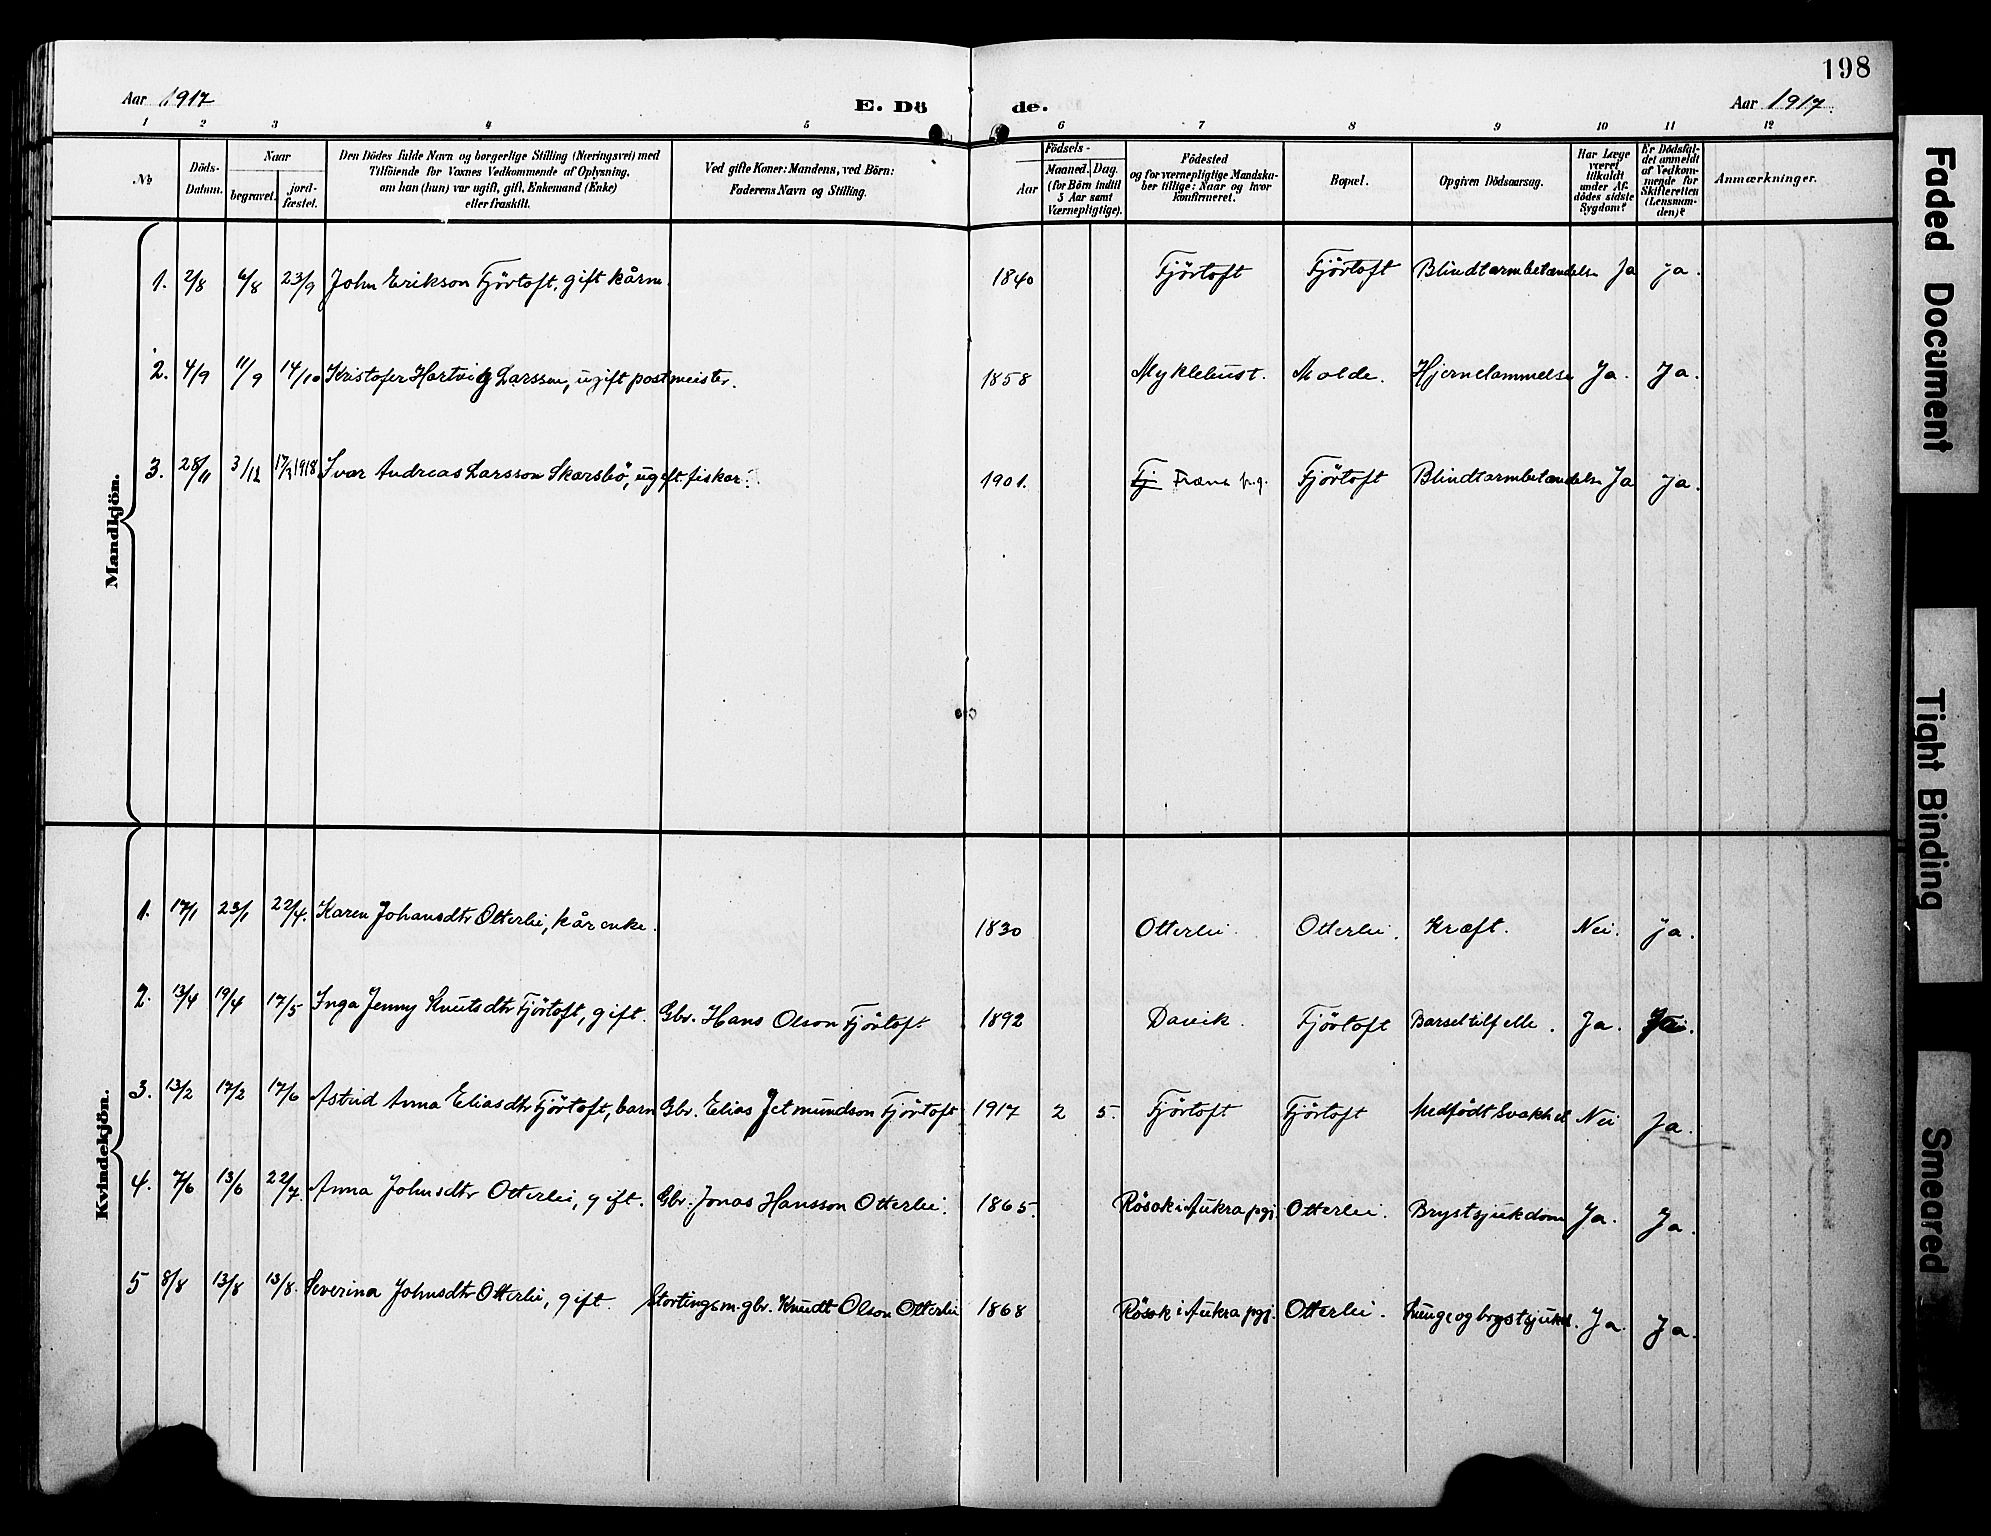 198
Aar 1917 E. Dö de. Aar 1917.
1 2 3 4 5 6 7 8 9 10 11 12
No
Döds-Datum.
Naar
begravet.
jord-fæstet.
Den Dödes fulde Navn og borgerlige Stilling (Næringsvei) med
Tilföiende for Voxnes Vedkommende af Oplysning,
om han (hun) var ugift, gift, Enkemand (Enke)
eller fraskilt.
Ved gifte Koner: Mandens, ved Börn:
Faderens Navn og Stilling.
Födsels-
Aar
Maaned. Dag.
(for Börn indtil
5 Aar samt
Værnepligtige).
Födested
og for værnepligtige Mandska-
ber tillige: Naar og hvor
konfirmeret.
Bopæl.
Opgiven Dödsaarsag.
Har Læge
været
tilkaldt
under Af-
dödes sidste
Sygdom?
Er Dödsfal-
det anmeldt
af Vedkom-
mende for
Skifteretten
(Lensman-
den)?
Anmærkninger.
Mandkjön.
1. 2/8 6/8 23/9 John Erikson Fjörtoft, gift kårm. 1840 Fjörtoft Fjörtoft Blindtarmbetændelse Ja ja.
2. 4/9 11/9 14/10 Kristofer Hartvig Larssen, ugift postmeister. 1858 Myklebust. Molde. Hjernelammelse Ja. Ja.
3. 28/11 3/12 1918 Ivar Andreas Larsson Skarsbö, ugift fiskar. 1901. Fj Fræna p.g. Fjörtoft Blindtarmbetændelse Ja ja.
Kvindekjön.
1. 17/1 23/1 22/4. Karen Johansdtr Otterlei, kårenke. 1830 Otterlei. Otterlei. Kræft. Nei. ja.
2. 13/4 19/4 17/5 Inga Jenny Knutsdtr Fjörtoft, gift. Gbr. Hans Olson Fjörtoft 1892 Davik. Fjörtoft Barseltilfelle. Ja.
3. 13/2 17/2 17/6 Astrid Anna Eliasdtr Fjörtoft, barn Gbr. Elias Jetmundson Fjörtoft 1917 2 5. Fjörtoft Fjörtoft Medfödt Svakhet Nei Ja.
4. 7/6 13/6 22/7. Anna Johnsdtr Otterlei, gift. Gbr. Jonas Hansson Otterlei. 1865. Rösok i Aukra pgj. Otterlei. Brystsjukdom Ja. Ja.
5 8/8 13/8 13/8. Severina Johnsdtr Otterlei, gift. Stortingsm. gbr. Knudt Olson Otterlei 1868 Rösok i Aukra pgj. Otterlei. Lunge og brystsjukd. Ja. Ja.
Faded Document
Tight Binding
Smeared